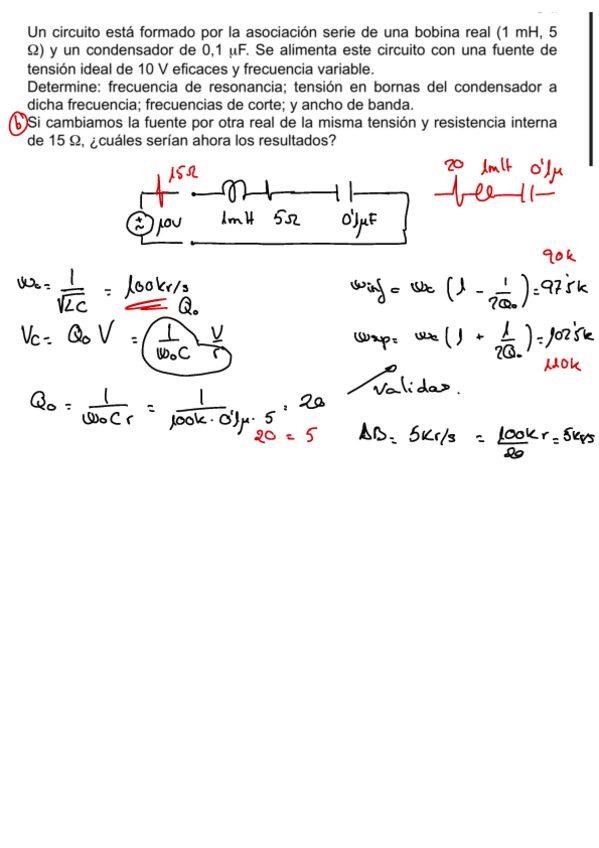 Un circuito está formado por la asociación serie de una bobina real (1 mH, 5
Ω) y un condensador de 0,1 μF. Se alimenta este circuito con una fuente de
tensión ideal de 10 V eficaces y frecuencia variable.
Determine: frecuencia de resonancia; tensión en bornas del condensador a
dicha frecuencia; frecuencias de corte; y ancho de banda.
b Si cambiamos la fuente por otra real de la misma tensión y resistencia interna
de 15 Ω, ¿cuáles serían ahora los resultados?
15Ω
20 1mH 0'1μ
10V 1mH 5Ω 0'1μF
ω₀ = 1/√LC = 100kr/s
90k
ωinf = ω₀ (1 - 1/2Q₀) = 97'5k
Vc = Q₀ V = 1/ω₀C V/r
Q₀
ωsup = ω₀ (1 + 1/2Q₀) = 102'5k
110k
Validas.
Q₀ = 1/ω₀Cr = 1/100k · 0'1μ · 5 = 20
20 = 5
AB = 5kr/s = 100kr/20 = 5krps